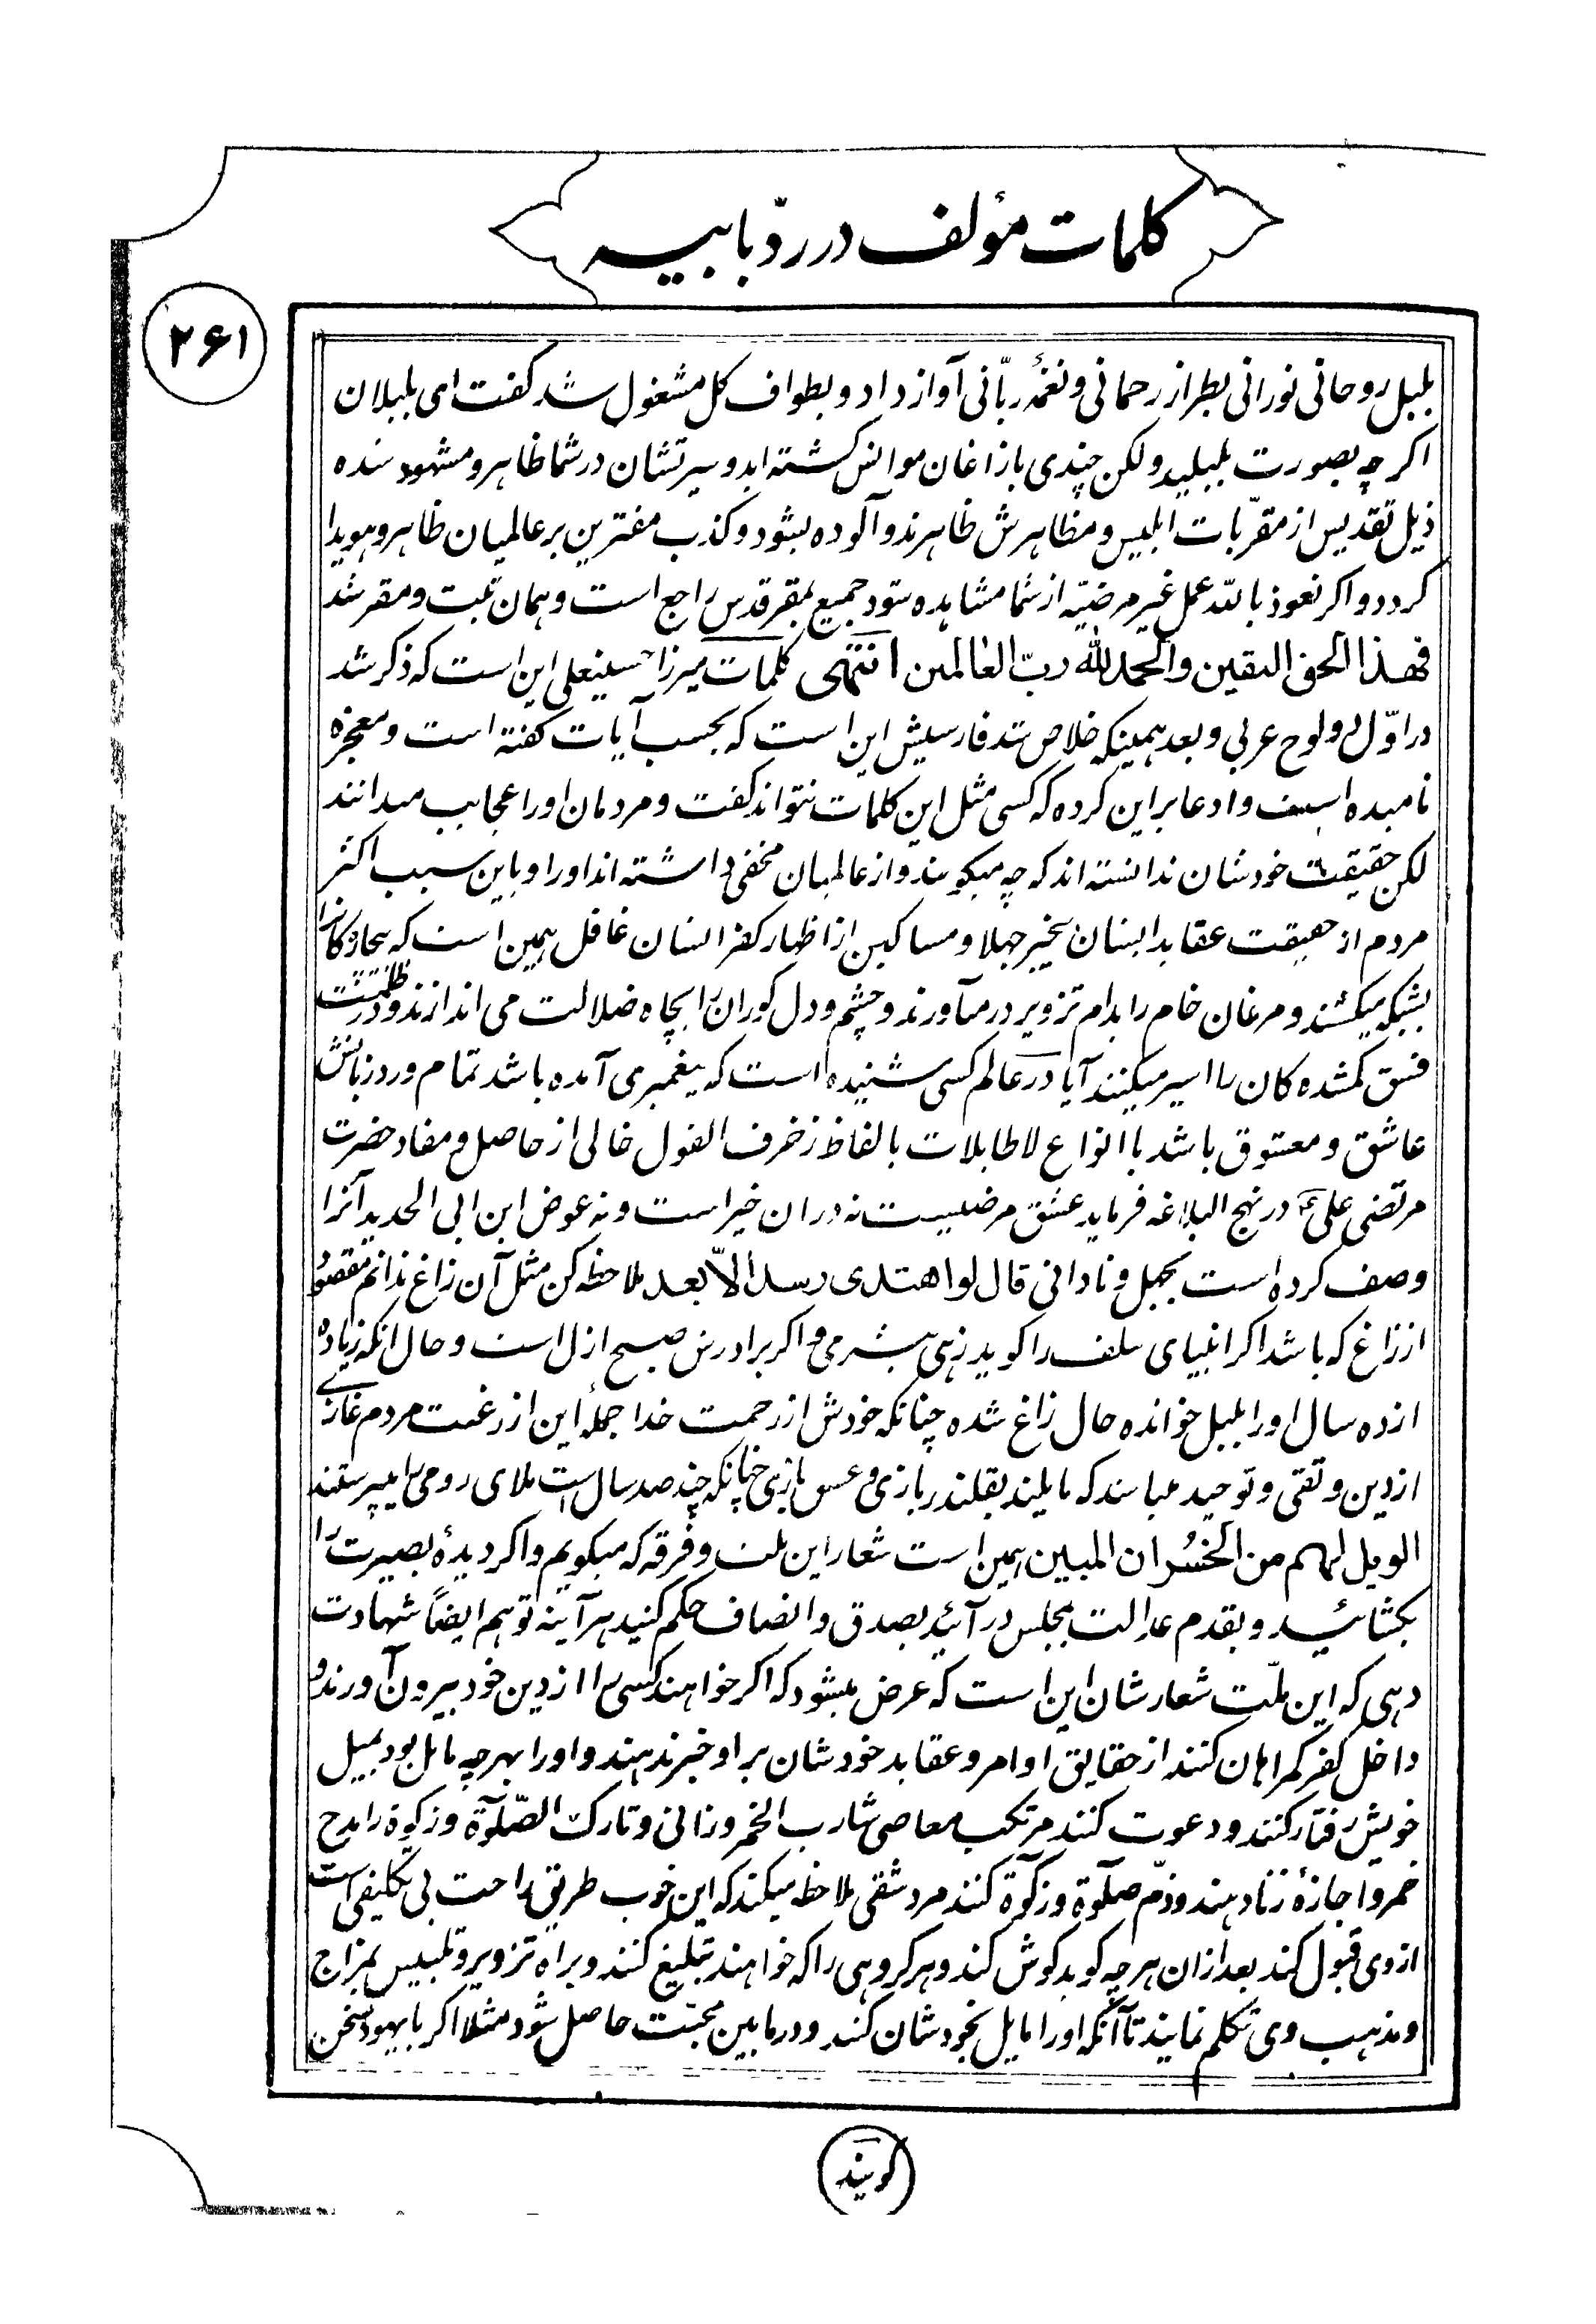 کلمات مؤلف در ردّ بابیه
۲۶۱
بلبل روحانی نورانی بطراز رحمانی و نغمهٔ ربّانی آواز داد و بطواف کل مشغول شد کفت ای بلبلان
اکر چه بصورت بلبلید ولکن چندی با زاغان موانس کشته اید و سیرتشان در شما ظاهر و مشهود شده
ذیل تقدیس از مقرّبات ابلیس و مظاهرش ظاهرند و آلوده بشود و کذب مفترین بر عالمیان ظاهر و هویدا
کردد و اکر نعوذ بالله عمل غیر مرضیّه از شما مشاهده شود جمیع بمقر قدس راجع است و همان ثبت و مقر شد
فهذا الحق الیقین والحمدلله ربّ العالمین انتهی کلمات میرزا حسینعلی این است که ذکر شد
در اوّل و لوح عربی و بعد همینکه خلاص شد فارسیش این است که بحسب آیات کفته است و معجزه
نامیده است و ادعا بر این کرده که کسی مثل این کلمات نتواند کفت و مردمان او را عجایب میدانند
لکن حقیقت خودشان ندانسته اند که چه میکویند و از عالمیان مخفی داشته اند او را و باین سبب اکثر
مردم از حقیقت عقاید ایشان بیخبر جهلا و مساکین از اظهار کفر ایشان غافل همین است که بیچاره کانرا
بشبکه میکشند و مرغان خام را بدام تزویر در میآورند و چشم و دل کوران را بچاه ضلالت می اندازند و در ظلمت
فسق کمشده کان را اسیر میکنند آیا در عالم کسی شنیده است که پیغمبری آمده باشد تمام ورد زبانش
عاشق و معشوق باشد با انواع لاطایلات بالفاظ زخرف القول خالی از حاصل و مفاد حضرت
مرتضی علی ع در نهج البلاغه فرماید عشق مرضیست نه در ان خیر است و نه عوض ابن ابی الحدید آنرا
وصف کرده است بجهل و نادانی قال لو اهتدی رسدا الاّ بعد ملاحظه کن مثل آن زاغ ندانم مقصود
از زاغ که باشد اکر انبیای سلف را کوید زهی بیشرمی و اکر برادرش صبح ازل است و حال انکه زیاده
از ده سال او را بلبل خوانده حال زاغ شده چنانکه خودش از رحمت خدا جملهٔ این از رغبت مردم عاری
از دین و تقی و توحید میباشد که مایلند بقلندر بازی و عشق بازی چنانکه چند صد سال است ملای رومی را میپرستند
الویل لهم من الخسران المبین همین است شعار این ملت و فرقه که میکویم و اکر دیدهٔ بصیرت را
بکشائید و بقدم عدالت بمجلس در آئید بصدق و انصاف حکم کنید هر آینه تو هم ایضاً شهادت
دهی که این ملّت شعارشان این است که عرض میشود که اکر خواهند کسی را از دین خود بیرون آورند و
داخل کفر کمراهان کنند از حقایق اوامر و عقاید خودشان بر او خبر ندهند و او را بهر چه مایل بود بمیل
خویش رفتار کنند و دعوت کنند مرتکب معاصی شارب الخمر و زانی و تارک الصّلوة و زکوة را مدح
خمر و اجازهٔ زنا دهند و ذمّ صلوة و زکوة کنند مرد شقی ملاحظه میکند که این خوب طریق راحت بی تکلیفی است
از وی قبول کند بعد از ان هر چه کوید کوش کند و هر کروهی را که خواهند تبلیغ کنند و براه تزویر و تلبیس بمزاج
و مذهب وی تکلم نمایند تا آنکه او را مایل بخودشان کنند و در مابین محبّت حاصل شود مثلا اکر با یهود سخن
کویند